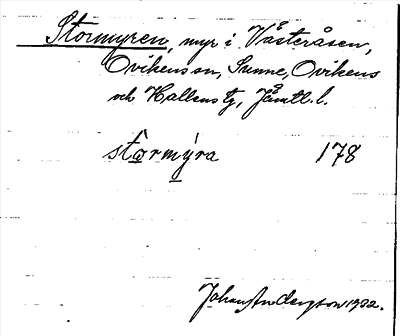 Stormyren, myr i Västeråsen,
Ovikens sn, Sunne, Ovikens
och Hallens tg, Jämtl. l.
stormýra 178
Johan Anderson 1932.